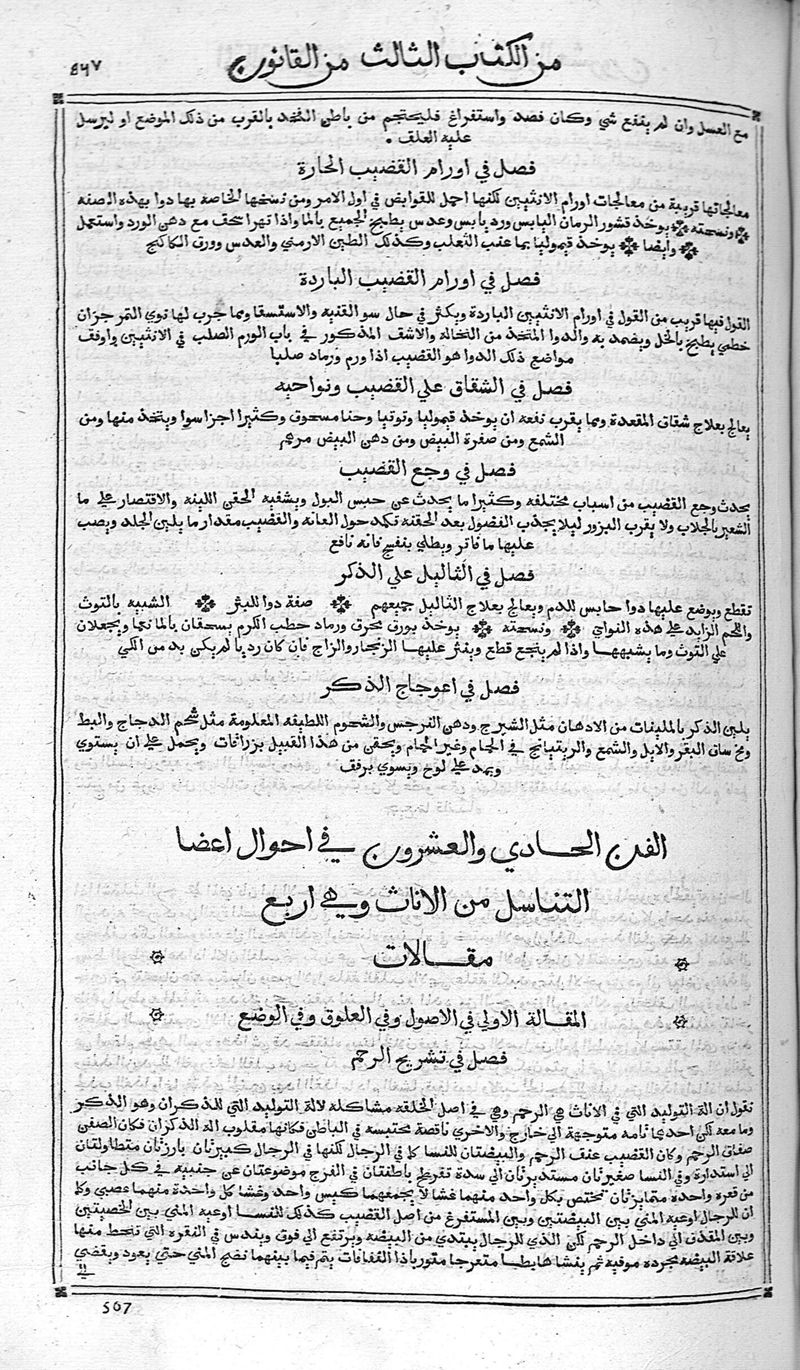 من الكتاب الثالث من القانون
٥٦٧
مع العسل وان لم ينفع شي وكان فصد واستفراغ فليحتجم من باطن الفخذ بالقرب من ذلك الموضع او ليرسل
عليه العلق
فصل في اورام القضيب الحارة
معالجاتها قريبة من معالجات اورام الانثيين لكنها احمل للقوابض في اول الامر ومن نسخها الخاصة بها دوا بهذه الصفه
ونسخته يوخذ قشور الرمان اليابس ورد يابس وعدس يطبخ الجميع بالما واذا تهرا سحق مع دهن الورد واستعمل
وايضا يوخذ قيموليا بما عنب الثعلب وكذلك الطين الارمني والعدس وورق الكاكنج
فصل في اورام القضيب الباردة
القول فيها قريب من القول في اورام الانثيين الباردة ويكثر في حال سو القنيه والاستسقا ومما جرب لها نوي التمر جزان
خطمي يطبخ بالخل ويضمد به والدوا المتخذ من النخاله والاشق المذكور في باب الورم الصلب في الانثيين واوفق
مواضع ذلك الدوا هو القضيب اذا ورم ورماد صلبا
فصل في الشقاق علي القضيب ونواحيه
يعالج بعلاج شقاق المقعدة ومما يقرب نفعه ان يوخذ قيموليا وتوتيا وحنا مسحوق وكثيرا اجزا سوا ويتخذ منها ومن
الشمع ومن صفرة البيض ومن دهن البيض مرهم
فصل في وجع القضيب
يحدث وجع القضيب من اسباب مختلفه وكثيرا ما يحدث عن حبس البول ويشفيه الحقن اللينه والاقتصار علي ما
الشعير بالجلاب ولا يقرب البزور ليلا يجذب الفضول بعد الحقنة تكمد حول العانه والقضيب مقدار ما يلين الجلد ويصب
عليها ما فاتر ويطلي بنفسج فانه نافع
فصل في الثاليل علي الذكر
تقطع ويوضع عليها دوا حابس للدم ويعالج بعلاج الثاليل جميعهم صفة دوا للبثر الشبيه بالتوث
واللحم الزايد علي هذه النواي ونسخته يوخذ بورق محرق ورماد حطب الكرم يسحقان بالما نعما ويجعلان
علي التوث وما يشبهها واذا لم ينجع قطع وينثر عليها الزنجار والزاج فان كان رديا لم يكن بد من الكي
فصل في اعوجاج الذكر
يلين الذكر بالملينات من الادهان مثل الشيرج ودهن النرجس والشحوم اللطيفه المعلومة مثل شحم الدجاج والبط
ومخ ساق البقر والايل والشمع والريتيانج في الحمام وغير الحمام ويحقن من هذا القبيل بزراقات ويحمل علي ان يستوي
ويمد علي لوح ويسوي برفق
الفن الحادي والعشرون في احوال اعضا
التناسل من الاناث وهي اربع
مقالات
المقالة الاولي في الاصول وفي العلوق وفي الوضع
فصل في تشريح الرحم
نقول ان الة التوليد التي في الاناث هي الرحم وهي في اصل الخلقه مشاكلة لالة التوليد التي للذكران وهو الذكر
وما معه لكن احديهما تامه متوجهة الي خارج والاخري ناقصة محتبسه في الباطن فكانها مقلوب الة الذكران فكان الصفن
صفاق الرحم وكان القضيب عنق الرحم والبيضتان للنسا كما في الرجال لكنها في الرجال كبيرتان بارزتان متطاولتان
الي استدارة وفي النسا صغيرتان مستديرتان الي سدة تفرطح باطنتان في الفرج موضوعتان عن جنبيه في كل جانب
من قعره واحدة متمايزتان تختص بكل واحد منهما غشا لا يجمعهما كيس واحد وغشا كل واحدة منهما عصبي وكما
ان للرجال اوعيه المني بين البيضتين وبين المستفرغ من اصل القضيب كذلك للنسا اوعيه المني بين الخصيتين
وبين المقذف الي داخل الرحم لكن الذي للرجال يبتدي من البيضه ويرتفع الي فوق ويندس في النقره التي تنحط منها
علاقة البيضه محرده موقيه ثم ينشا هابطا متعرجا متوربا ذا التفافات يتم فيما بينهما نضج المني حتي يعود ويفضي
الي
567